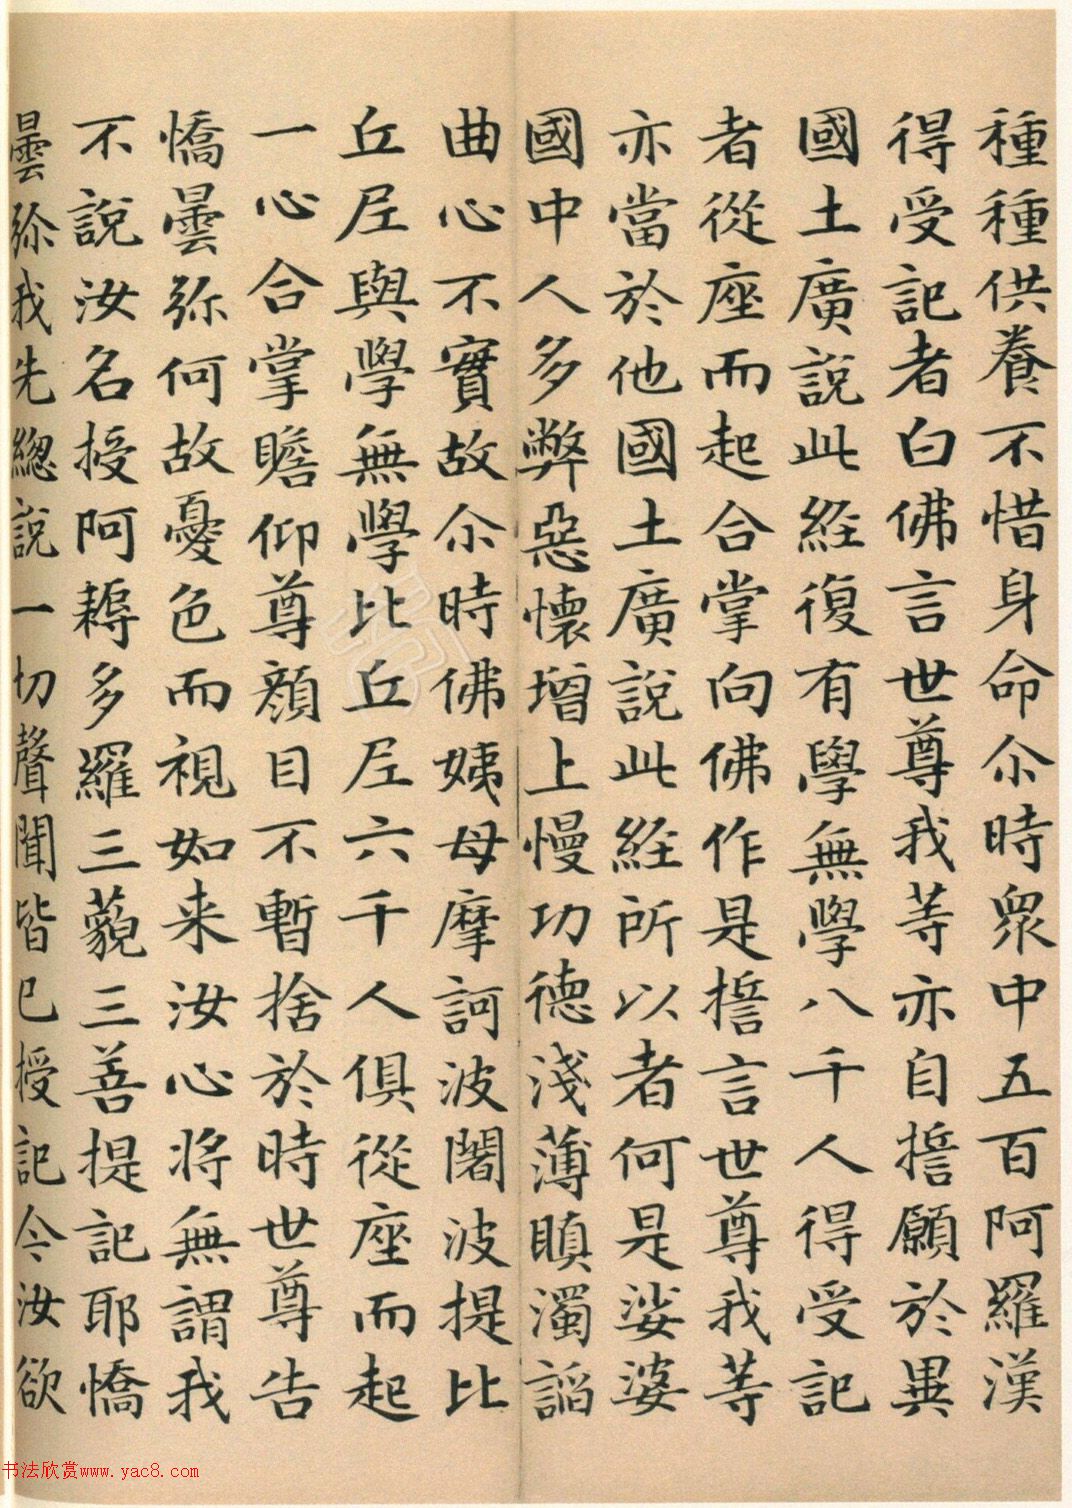 種種供養不惜身命尒時眾中五百阿羅漢
得受記者白佛言世尊我等亦自誓願於異
國土廣說此經復有學無學八千人得受記
者從座而起合掌向佛作是誓言世尊我等
亦當於他國土廣說此經所以者何是娑婆
國中人多弊惡懷增上慢功德淺薄瞋濁諂
曲心不實故尒時佛姨母摩訶波闍波提比
丘尼與學無學比丘尼六千人俱從座而起
一心合掌瞻仰尊顏目不暫捨於時世尊告
憍曇弥何故憂色而視如来汝心将無謂我
不說汝名授阿耨多羅三藐三菩提記耶憍
曇弥我先總說一切聲聞皆已授記今汝欲
书法欣赏www.yac8.com